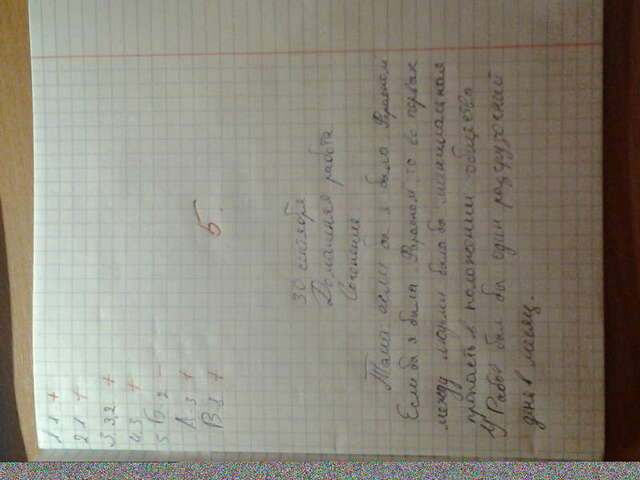 1 1 +
2 1 +
3 3,2 +
4 3 +
5 Б. 2 –
А 3 +
В 1 +
5.
30 сентября
Домашняя работа
Сочинение
Тема: если бы я была Фараоном
Если бы я была Фараоном то во первых
между людьми была бы
пропасть в положении общества
1) Рабов был бы один разгрузочный
день в месяц.